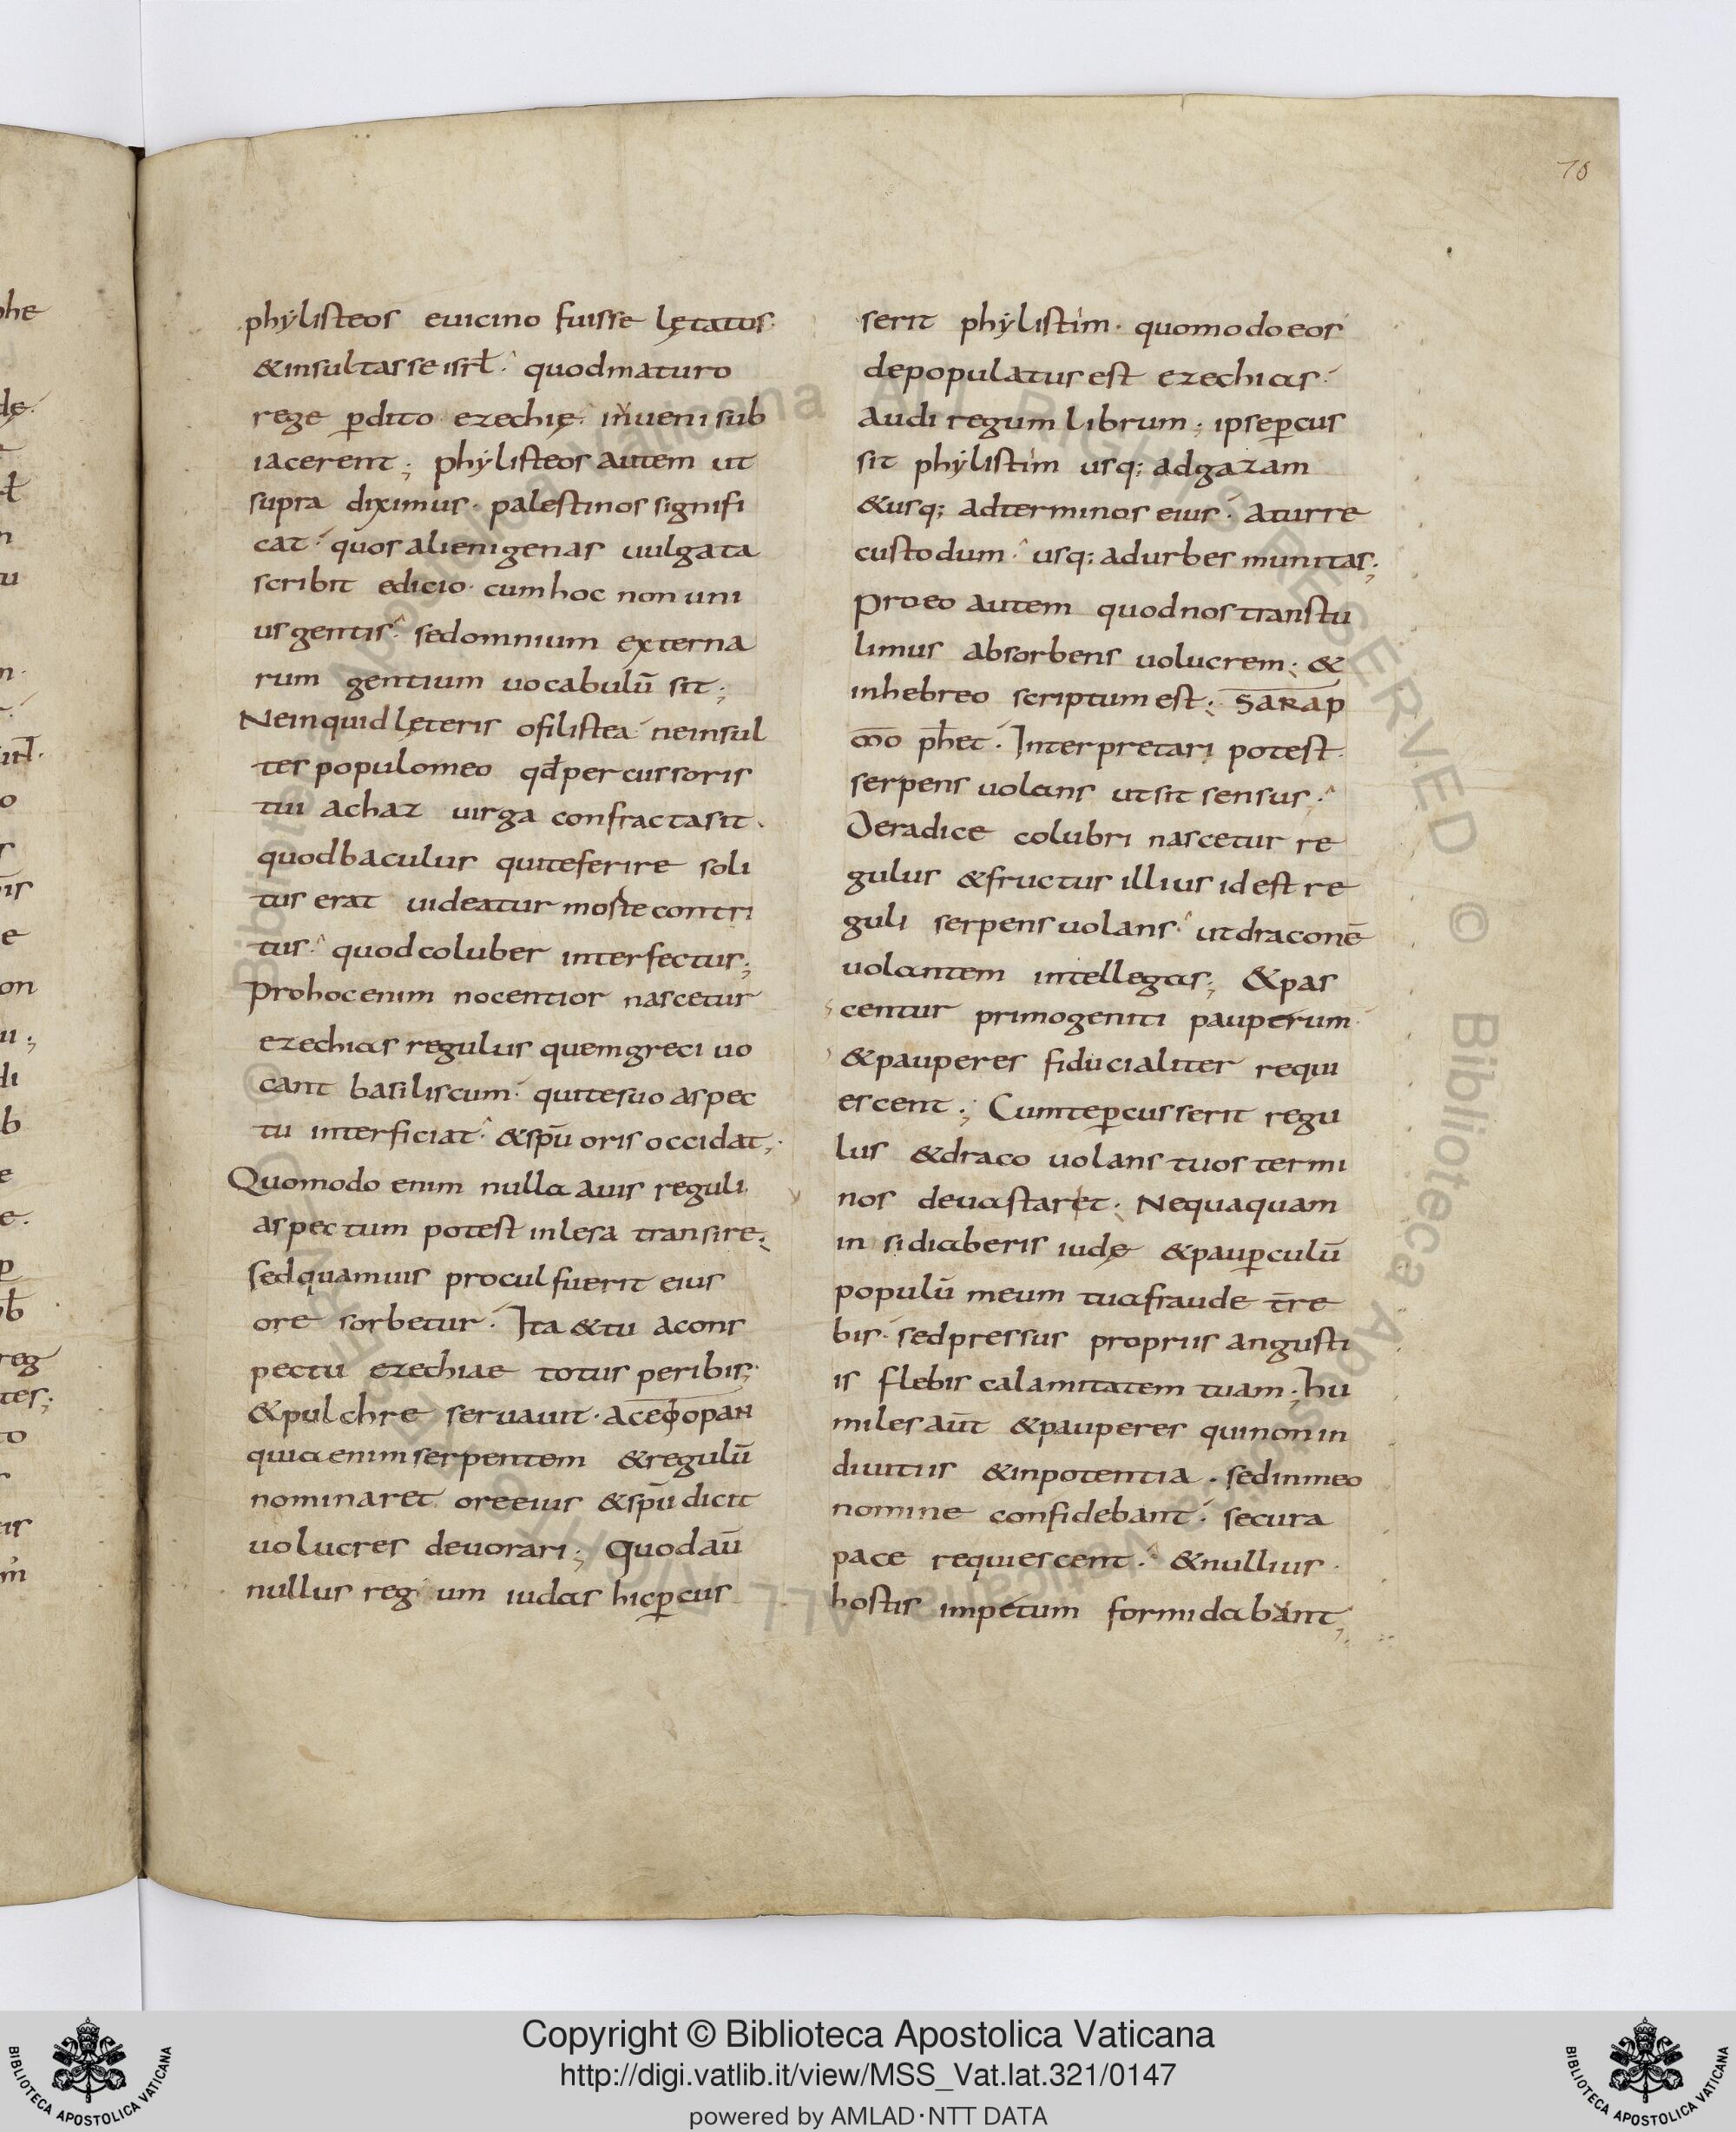 70
phẏlisteos euicino fuisse lętatos·
&insultasse isrł· quodmaturo
rege ꝑdito ezechię· inueni sub
iacerent; phẏlisteos autem ut
supra diximus· palestinos signifi
cat· quos alienigenas uulgata
scribit edicio· cumhoc non uni
us gentis· sedomnium externa
rum gentium uocabulū sit;
Neinquid lęteris ofilistea neinsul
tes populomeo qđpercussoris
tui achaz uirga confractasit·
quodbaculus quiteferire soli
tus erat uideatur morte contri
tus· quodcoluber interfectus;
Prohocenim nocentior nascetur
ezechias regulus quemgreci uo
cant basiliscum· quitesuo aspec
tu interficiat· &spū oris occidat;
Quomodo enim nulla auis reguli
aspectum potest inlesa transire;
sedquamuis procul fuerit eius
ore sorbetur· Ita &tu acons
pectu ezechiae totus peribis;
&pulchre seruauit· aceϕopan
quia enim serpentem &regulū
nominaret oreeius &spū dicit
uolucres deuorari; Quodaū
nullus regum iudas hicꝑcus
serit phẏlistim· quomodoeos
depopulatus est ezechias·
audi regum librum; ipseꝑcus
sit phẏlistim usq; adgazam
&usq; adterminos eius· aturre
custodum· usq; adurbes munitas;
Proeo autem quodnos transtu
limus absorbens uolucrem; &
inhebreo scriptum est; SARAP
ōo phet· Interpretari potest
serpens uolans utsit sensus·
Deradice colubri nascetur re
gulus &fructus illius idest re
guli serpens uolans· utdraconē
uolantem intellegas; &pas
centur primogeniti pauperum·
&pauperes fiducialiter requi
escent; Cumteꝑcusserit regu
lus &draco uolans tuos termi
nos deuastaret; Nequaquam
insidiaberis iudę &pauꝑculū
populū meum tuafraude tr̄re
bis· sedpressus propriis angusti
is flebis calamitatem tuam; hu
miles aūt &pauperes quinonin
diuitiis &inpotentia· sedinmeo
nomine confidebant· secura
pace requiescent· &nullius·
hostis impetum formidabant;
Copyright © Biblioteca Apostolica Vaticana
http://digi.vatlib.it/view/MSS_Vat.lat.321/0147
powered by AMLAD·NTT DATA
BIBLIOTECA APOSTOLICA VATICANA
BIBLIOTECA APOSTOLICA VATICANA